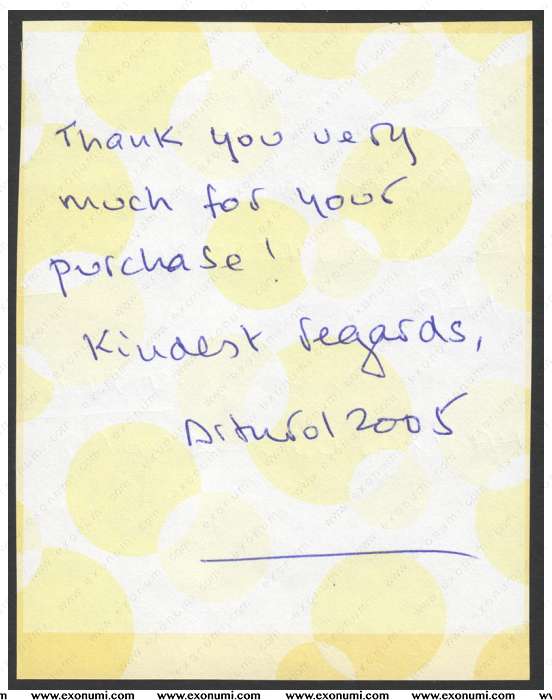 Thank you very
much for your
purchase!
Kindest regards,
Arturo12005
www.exonumi.com www.exonumi.com www.exonumi.com